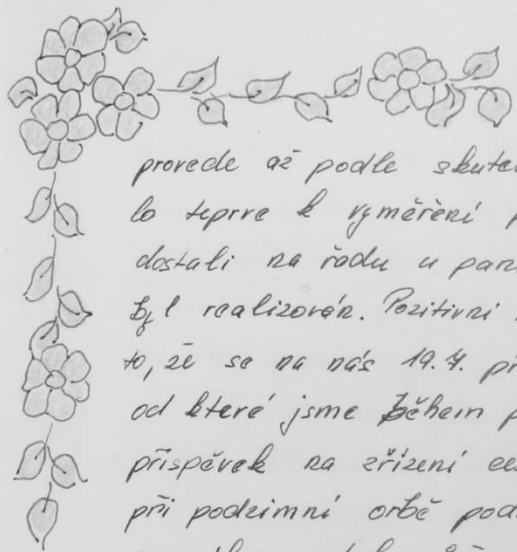 provede až podle skuteč
lo teprve k vyměření p
dostali na řadu u pan
byl realizován. Pozitivní
to, že se na nás 19.7. př
od které jsme během p
příspěvek na zřízení ce
při podzimní orbě pod